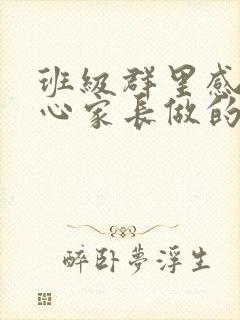 班級群里感
心家長做的
醉卧夢浮生